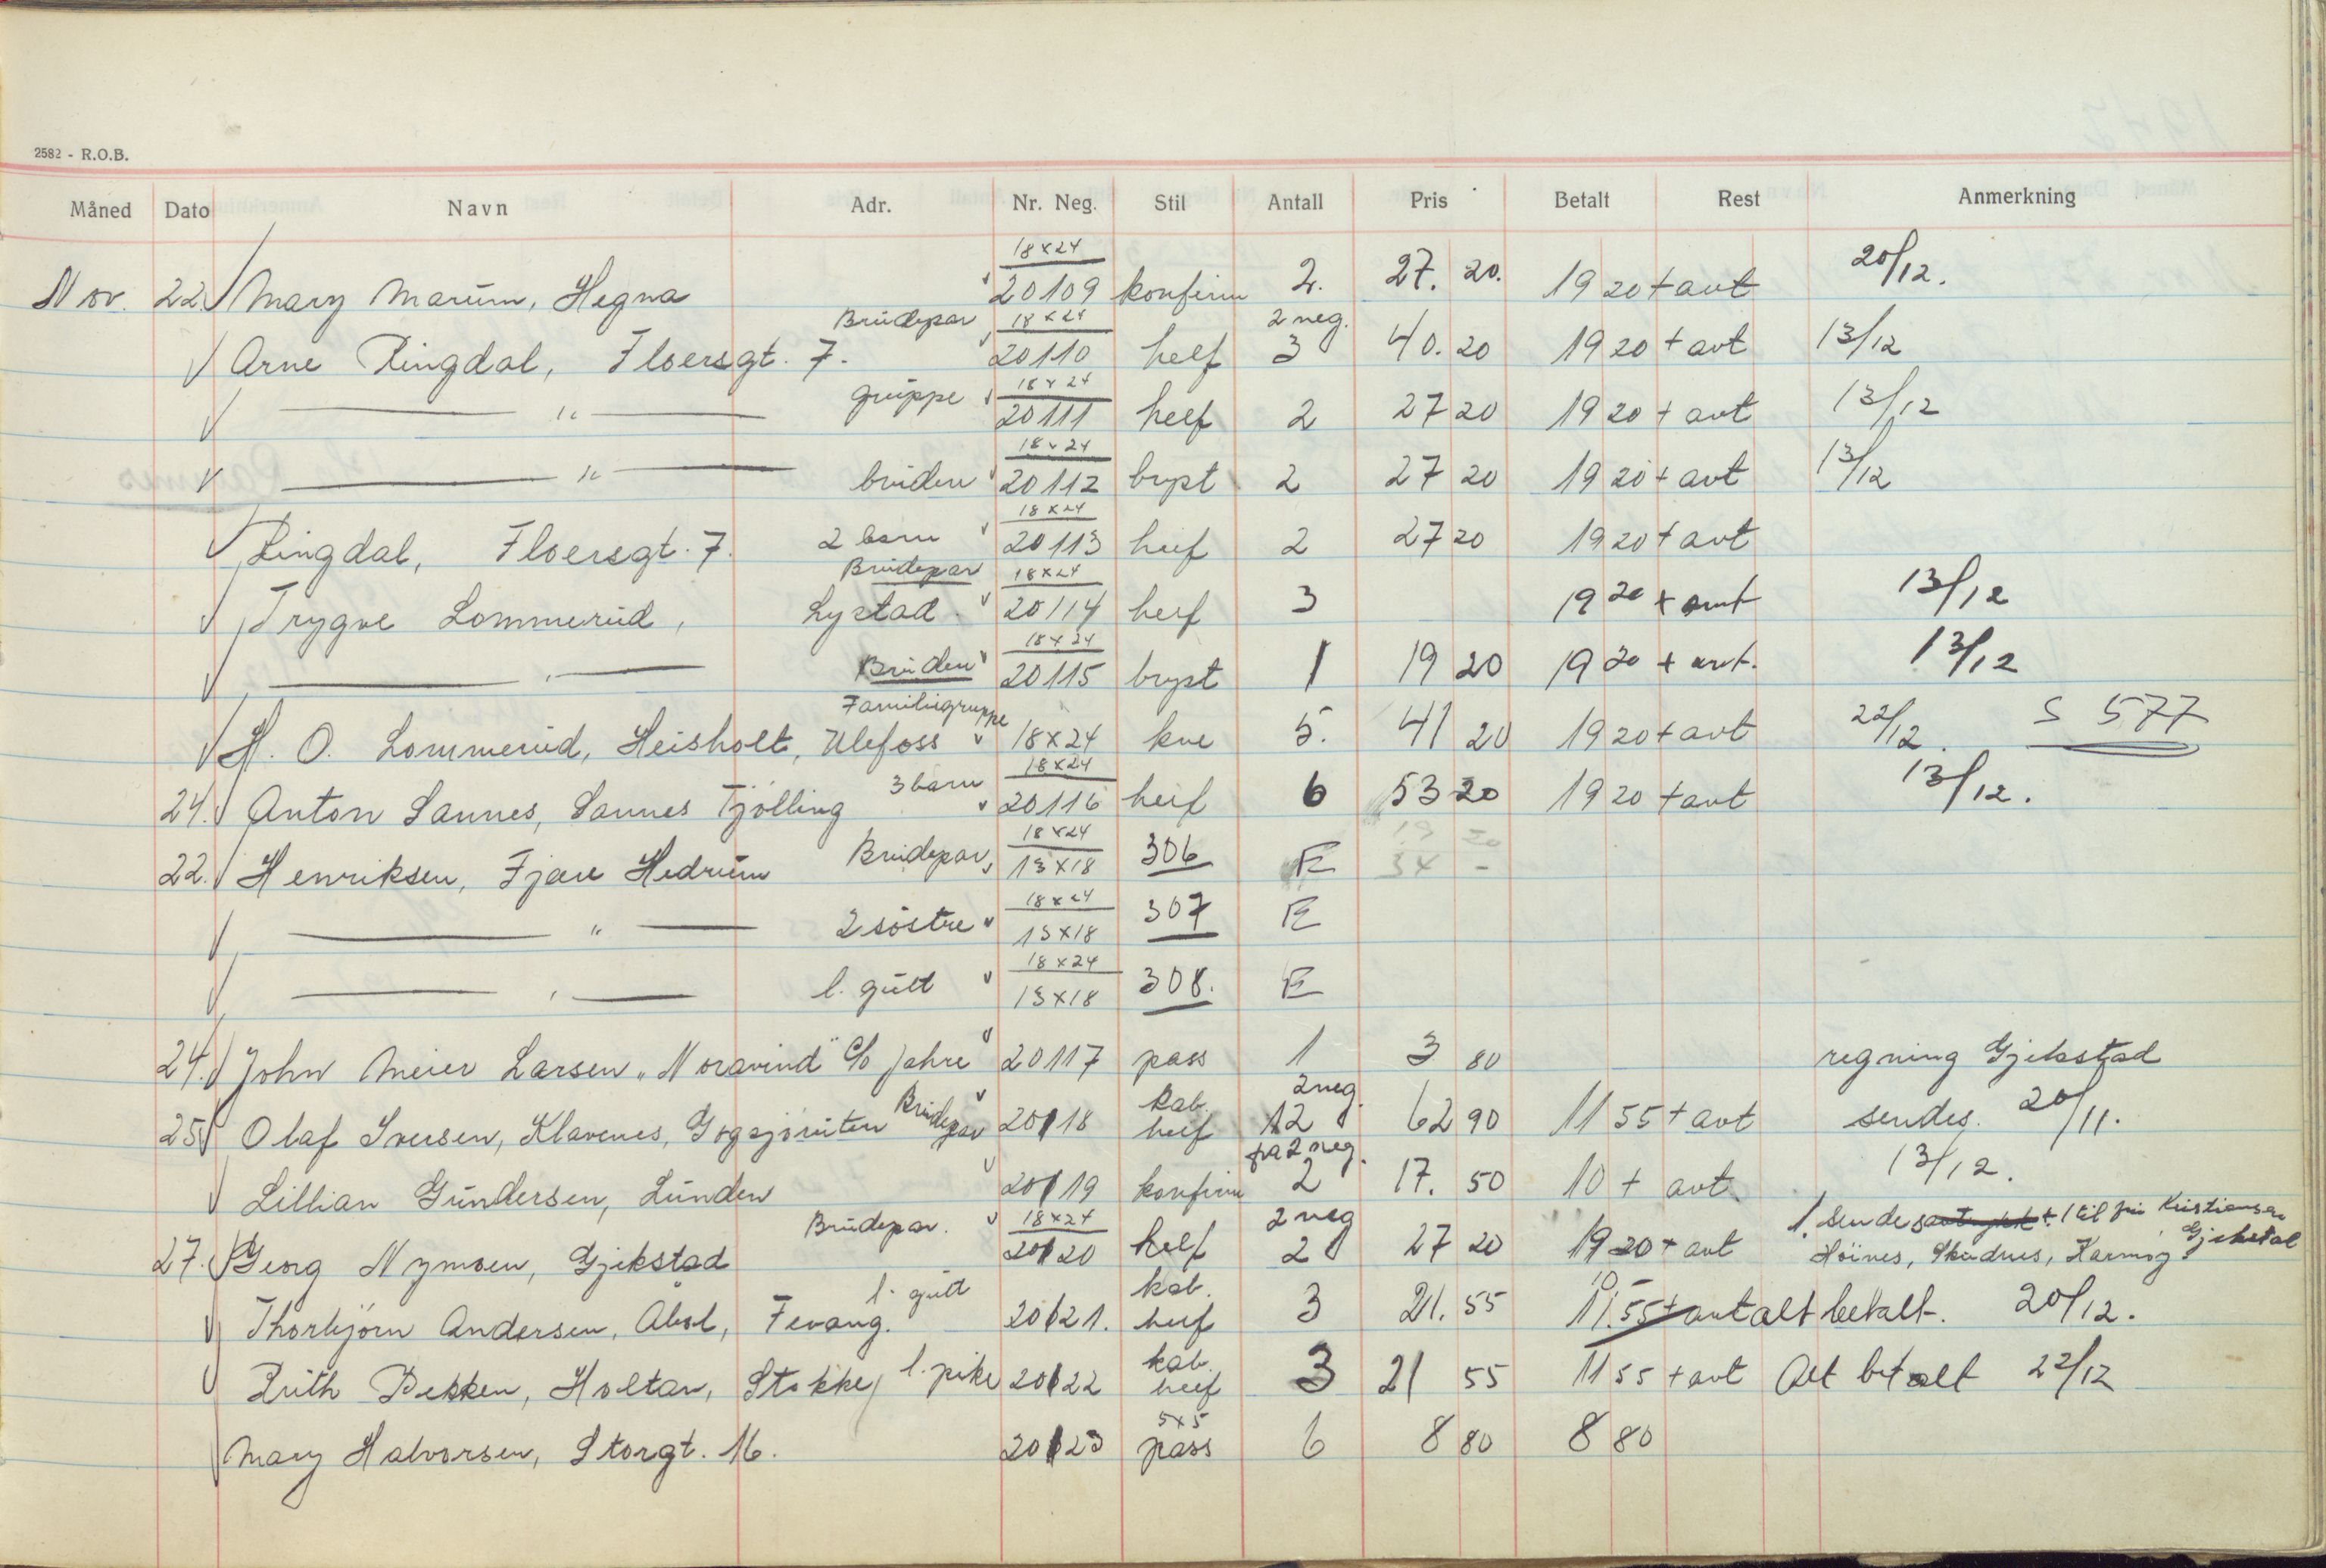 2582 - R.O.B.
Måned Dato Navn Adr. Nr. Neg. Stil Antall Pris Betalt Rest Anmerkning
18x24
Nov. 22. Mary Marum, Hegna 20109 konfirm 2. 27. 20. 19 20 + avt 20/12.
Brudepar 18x24 2 neg.
Arne Ringdal, Floersgt. 7. 20110 helf 3 40. 20 19 20 + avt 13/12
gruppe 18x24
— " — 20111 helf 2 27 20 19 20 + avt 13/12
18x24
— " — bruden 20112 bryst 2 27 20 19 20 + avt 13/12
18x24
Ringdal, Floersgt. 7. 2 barn 20113 helf 2 27 20 19 20 + avt
Brudepar 18x24
Trygve Lommerud, Lystad. 20114 helf 3 19 20 + avt 13/12
18x24
— " — Bruden 20115 bryst 1 19 20 19 20 + avt. 13/12
Familiegruppe
H. O. Lommerud, Heisholt, Ulefoss 18x24 kne 5. 41 20 19 20 + avt 22/12. S 577
3 barn 18x24
24. Anton Sannes, Sannes Tjølling 20116 helf 6 53 20 19 20 + avt 13/12.
18x24 19 20
22. Henriksen, Fjære Hedrum Brudepar 13x18 306 E 34 -
18x24
— " — 2 søstre 13x18 307 E
18x24
— " — l. gutt 13x18 308. E
24. John Meier Larsen "Noravind" c/o Jahre 20117 pass 1 3 80 regning Gjekstad
Brudepar kab. 2 neg.
25. Olaf Iversen, Klavenes, Gogsjø 20118 helf 12 62 90 11 55 + avt sendes. 20/11.
på 2 neg.
Lillian Gundersen, Lunden 20119 konfirm 2 17. 50 10 + avt 13/12.
Brudepar. 18x24 2 neg 1. sendes + 1 til fru Kristiansen
27. Georg Nymoen, Gjekstad 20120 helf 2 27 20 19 20 + avt Höines, Skudnes, Karmøy Gjekstad
l. gutt kab. 10
Thorbjørn Andersen, Åbol, Fevang. 20121. helf 3 21. 55 11.55 + avt alt betalt. 20/12.
l. pike kab.
Ruth Bekken, Holtan, Stokke, 20122 helf 3 21 55 11 55 + avt Alt betalt 22/12
5x5
Mary Halvorsen, Storgt. 16. 20123 pass 6 8 80 8 80